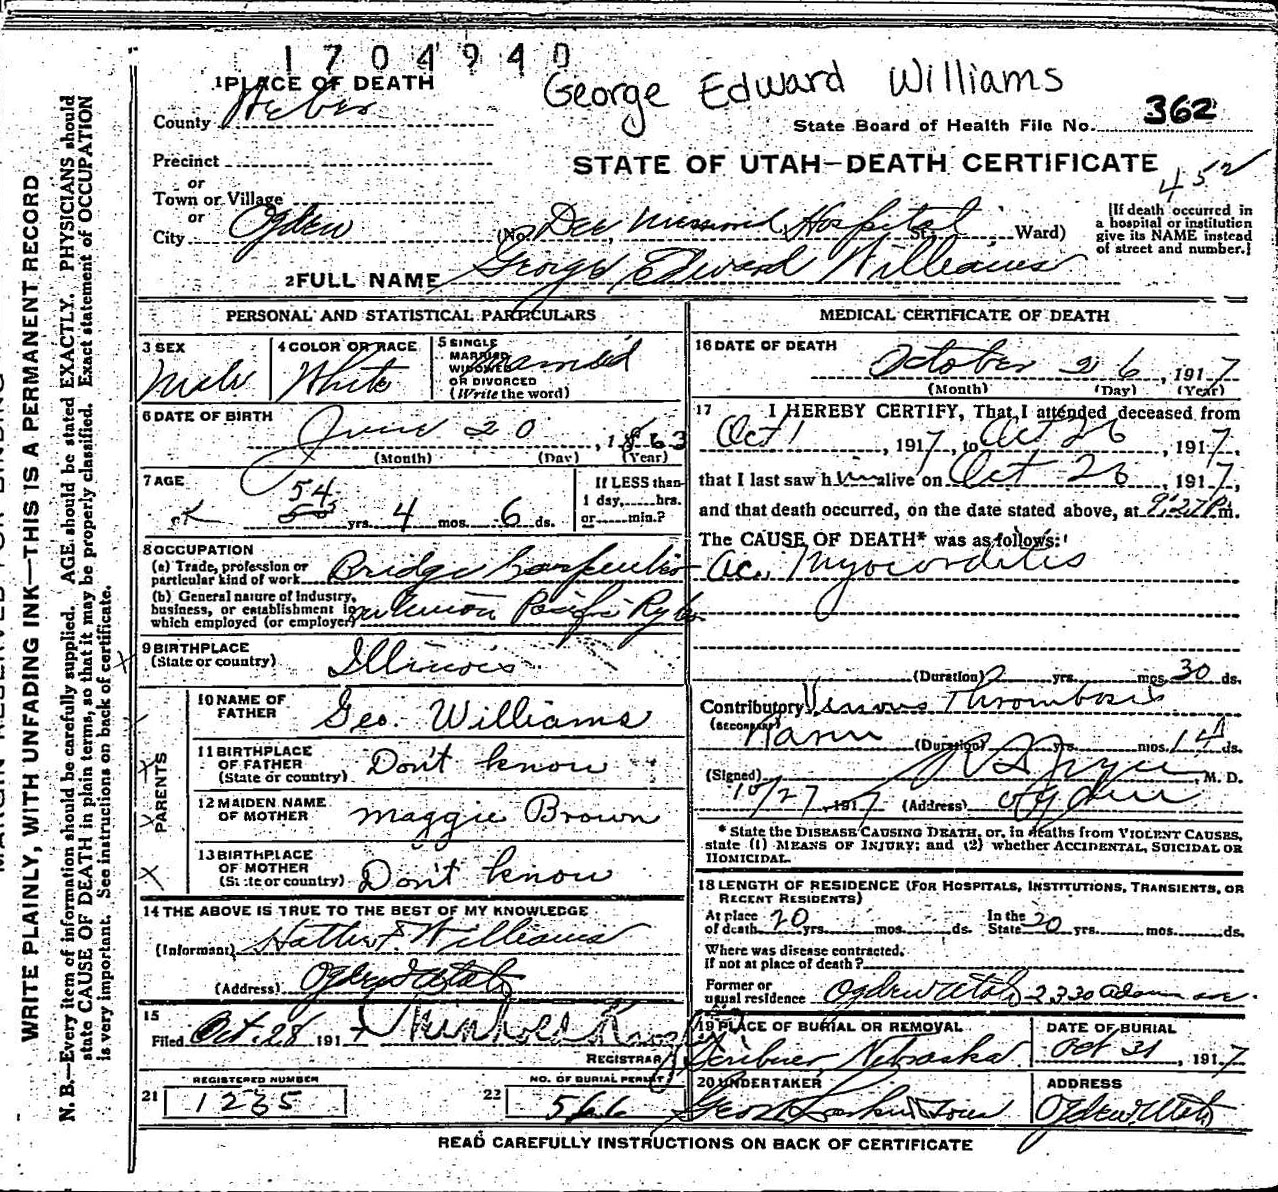 1704940
George Edward Williams
1 PLACE OF DEATH
County Weber
State Board of Health File No. 362
Precinct
STATE OF UTAH—DEATH CERTIFICATE
452
or
Town or Village
or
City Ogden
(No. Dee Memorial Hospital St.; Ward)
[If death occurred in
a hospital or institution
give its NAME instead
of street and number.]
2 FULL NAME George Edward Williams
PERSONAL AND STATISTICAL PARTICULARS
3 SEX
Male
4 COLOR OR RACE
White
5 SINGLE
MARRIED
WIDOWED
OR DIVORCED
(Write the word)
Married
6 DATE OF BIRTH
June 20, 1863
(Month) (Day) (Year)
7 AGE
54
yrs. 4 mos. 6 ds.
If LESS than
1 day, hrs.
or min.?
8 OCCUPATION
(a) Trade, profession or
particular kind of work Bridge Carpenter
(b) General nature of Industry,
business, or establishment in
which employed (or employer) Union Pacific Ry
9 BIRTHPLACE
(State or country) Illinois
PARENTS
10 NAME OF
FATHER Geo. Williams
11 BIRTHPLACE
OF FATHER
(State or country) Don't know
12 MAIDEN NAME
OF MOTHER Maggie Brown
13 BIRTHPLACE
OF MOTHER
(State or country) Don't know
14 THE ABOVE IS TRUE TO THE BEST OF MY KNOWLEDGE
(Informant) Williams
(Address) Ogden Utah
15
Filed Oct. 28 1917
REGISTRAR
REGISTERED NUMBER
21 1235
NO. OF BURIAL PERMIT
22 566
MEDICAL CERTIFICATE OF DEATH
16 DATE OF DEATH
October 26, 1917
(Month) (Day) (Year)
17 I HEREBY CERTIFY, That I attended deceased from
Oct 1, 1917, to Oct 26, 1917,
that I last saw him alive on Oct 26, 1917,
and that death occurred, on the date stated above, at 9:27 P m.
The CAUSE OF DEATH* was as follows:
Ac. Myocarditis
(Duration) yrs. mos. 30 ds.
Contributory Venous Thrombosis
(SECONDARY)
(Duration) yrs. mos. 14 ds.
(Signed) M. D.
10/27, 1917 (Address) Ogden
* State the DISEASE CAUSING DEATH, or, in deaths from VIOLENT CAUSES,
state (1) MEANS OF INJURY; and (2) whether ACCIDENTAL, SUICIDAL OR
HOMICIDAL.
18 LENGTH OF RESIDENCE (FOR HOSPITALS, INSTITUTIONS, TRANSIENTS, OR
RECENT RESIDENTS)
At place
of death 20 yrs. mos. ds.
In the
State 20 yrs. mos. ds.
Where was disease contracted.
If not at place of death?
Former or
usual residence Ogden Utah 2330 Adams ave.
19 PLACE OF BURIAL OR REMOVAL
Scribner, Nebraska
DATE OF BURIAL
Oct 31, 1917
20 UNDERTAKER
ADDRESS
Ogden Utah
READ CAREFULLY INSTRUCTIONS ON BACK OF CERTIFICATE
WRITE PLAINLY, WITH UNFADING INK—THIS IS A PERMANENT RECORD
N. B.—Every item of information should be carefully supplied. AGE should be stated EXACTLY. PHYSICIANS should
state CAUSE OF DEATH in plain terms, so that it may be properly classified. Exact statement of OCCUPATION
is very important. See instructions on back of certificate.